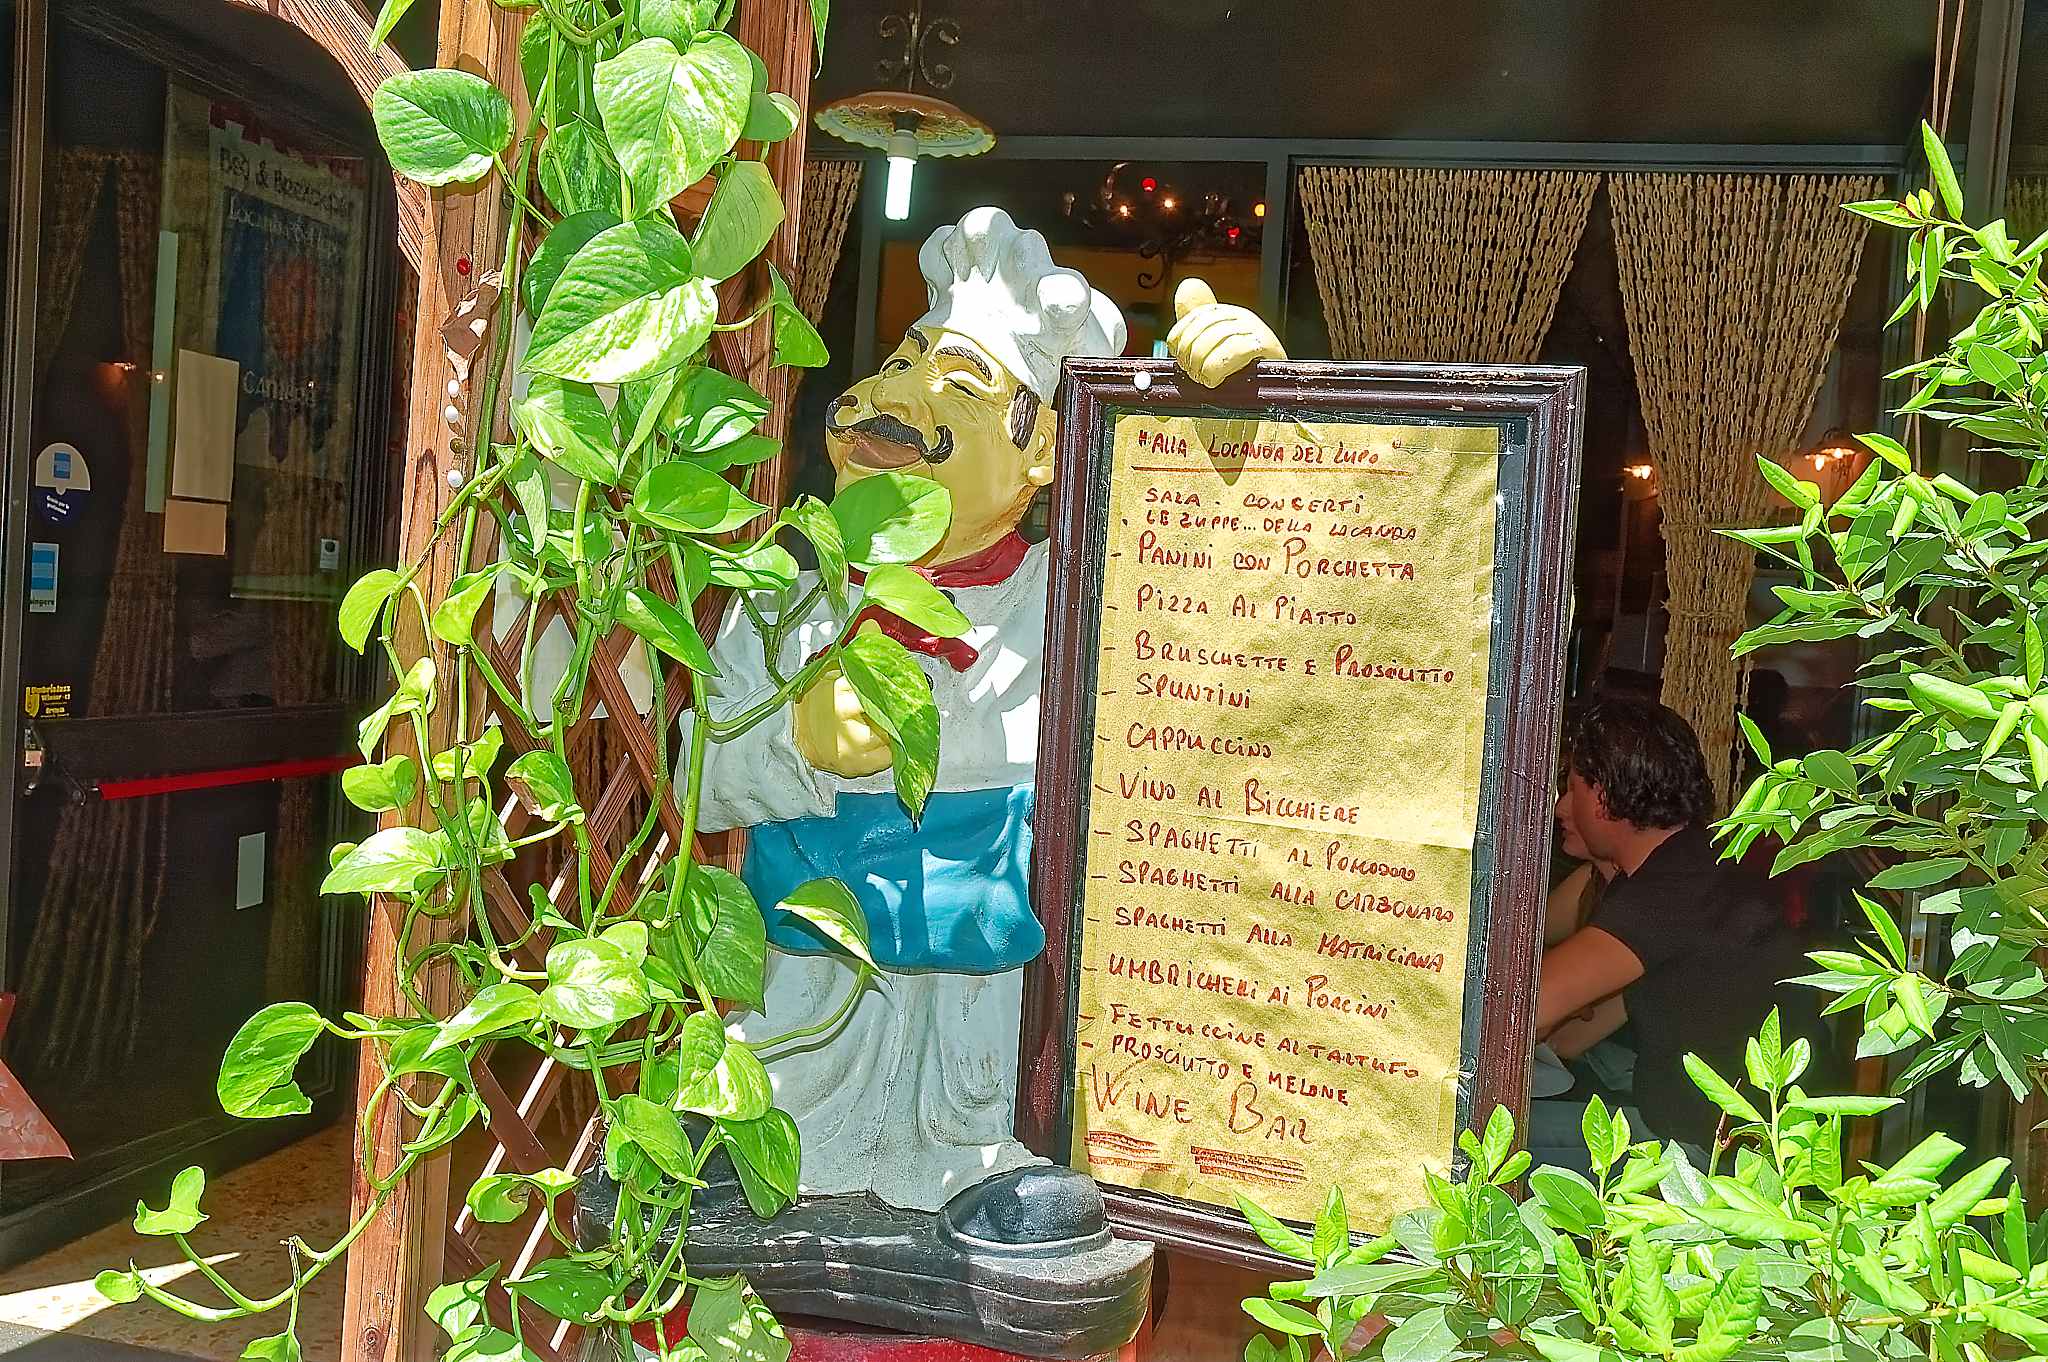 "ALLA LOCANDA DEL LUPO"
SALA - CONCERTI
. LE ZUPPE... DELLA LOCANDA
- PANINI CON PORCHETTA
- PIZZA AL PIATTO
- BRUSCHETTE E PROSCIUTTO
- SPUNTINI
- CAPPUCCINO
- VINO AL BICCHIERE
- SPAGHETTI AL POMODORO
- SPAGHETTI ALLA CARBONARA
- SPAGHETTI ALLA MATRICIANA
- UMBRICHELI AI PORCINI
- FETTUCCINE AL TARTUFO
- PROSCIUTTO E MELONE
WINE BAR